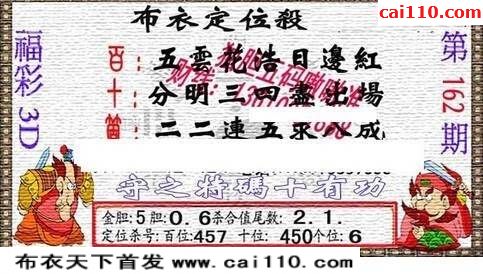 cai110.com
布衣定位殺
福彩3D
第162期
百：五雲花浩日邊紅
十：分明三四盡出場
個：二二連五來八成
守之将碼十有功
金胆:5胆:0.6杀合值尾数: 2.1.
定位杀号:百位:457 十位: 450个位:6
布衣天下首发 www.cai110.com